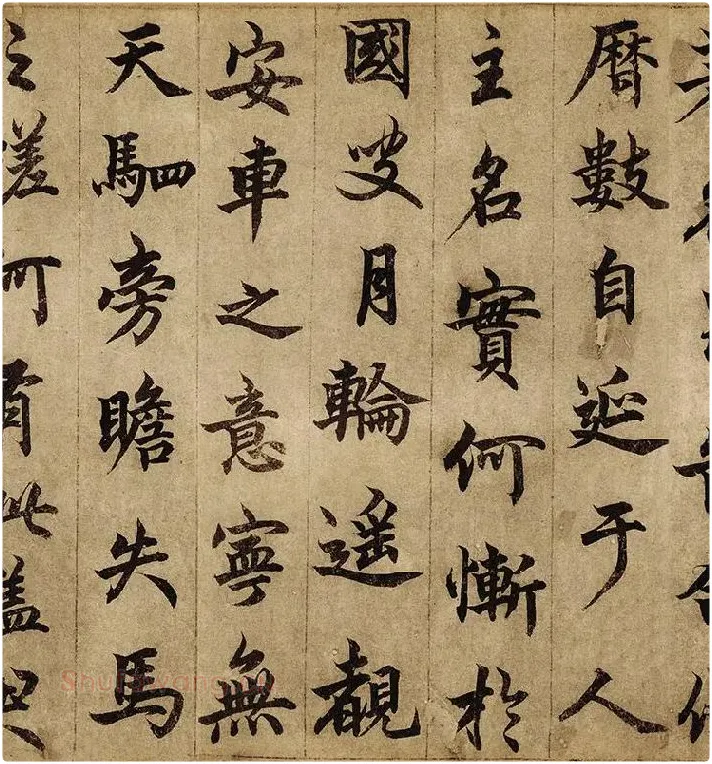 曆數自延于人
主名實何慚於
國叟月輪遙覩
安車之意寧無
天駟旁瞻失馬
之嗟何有此盖